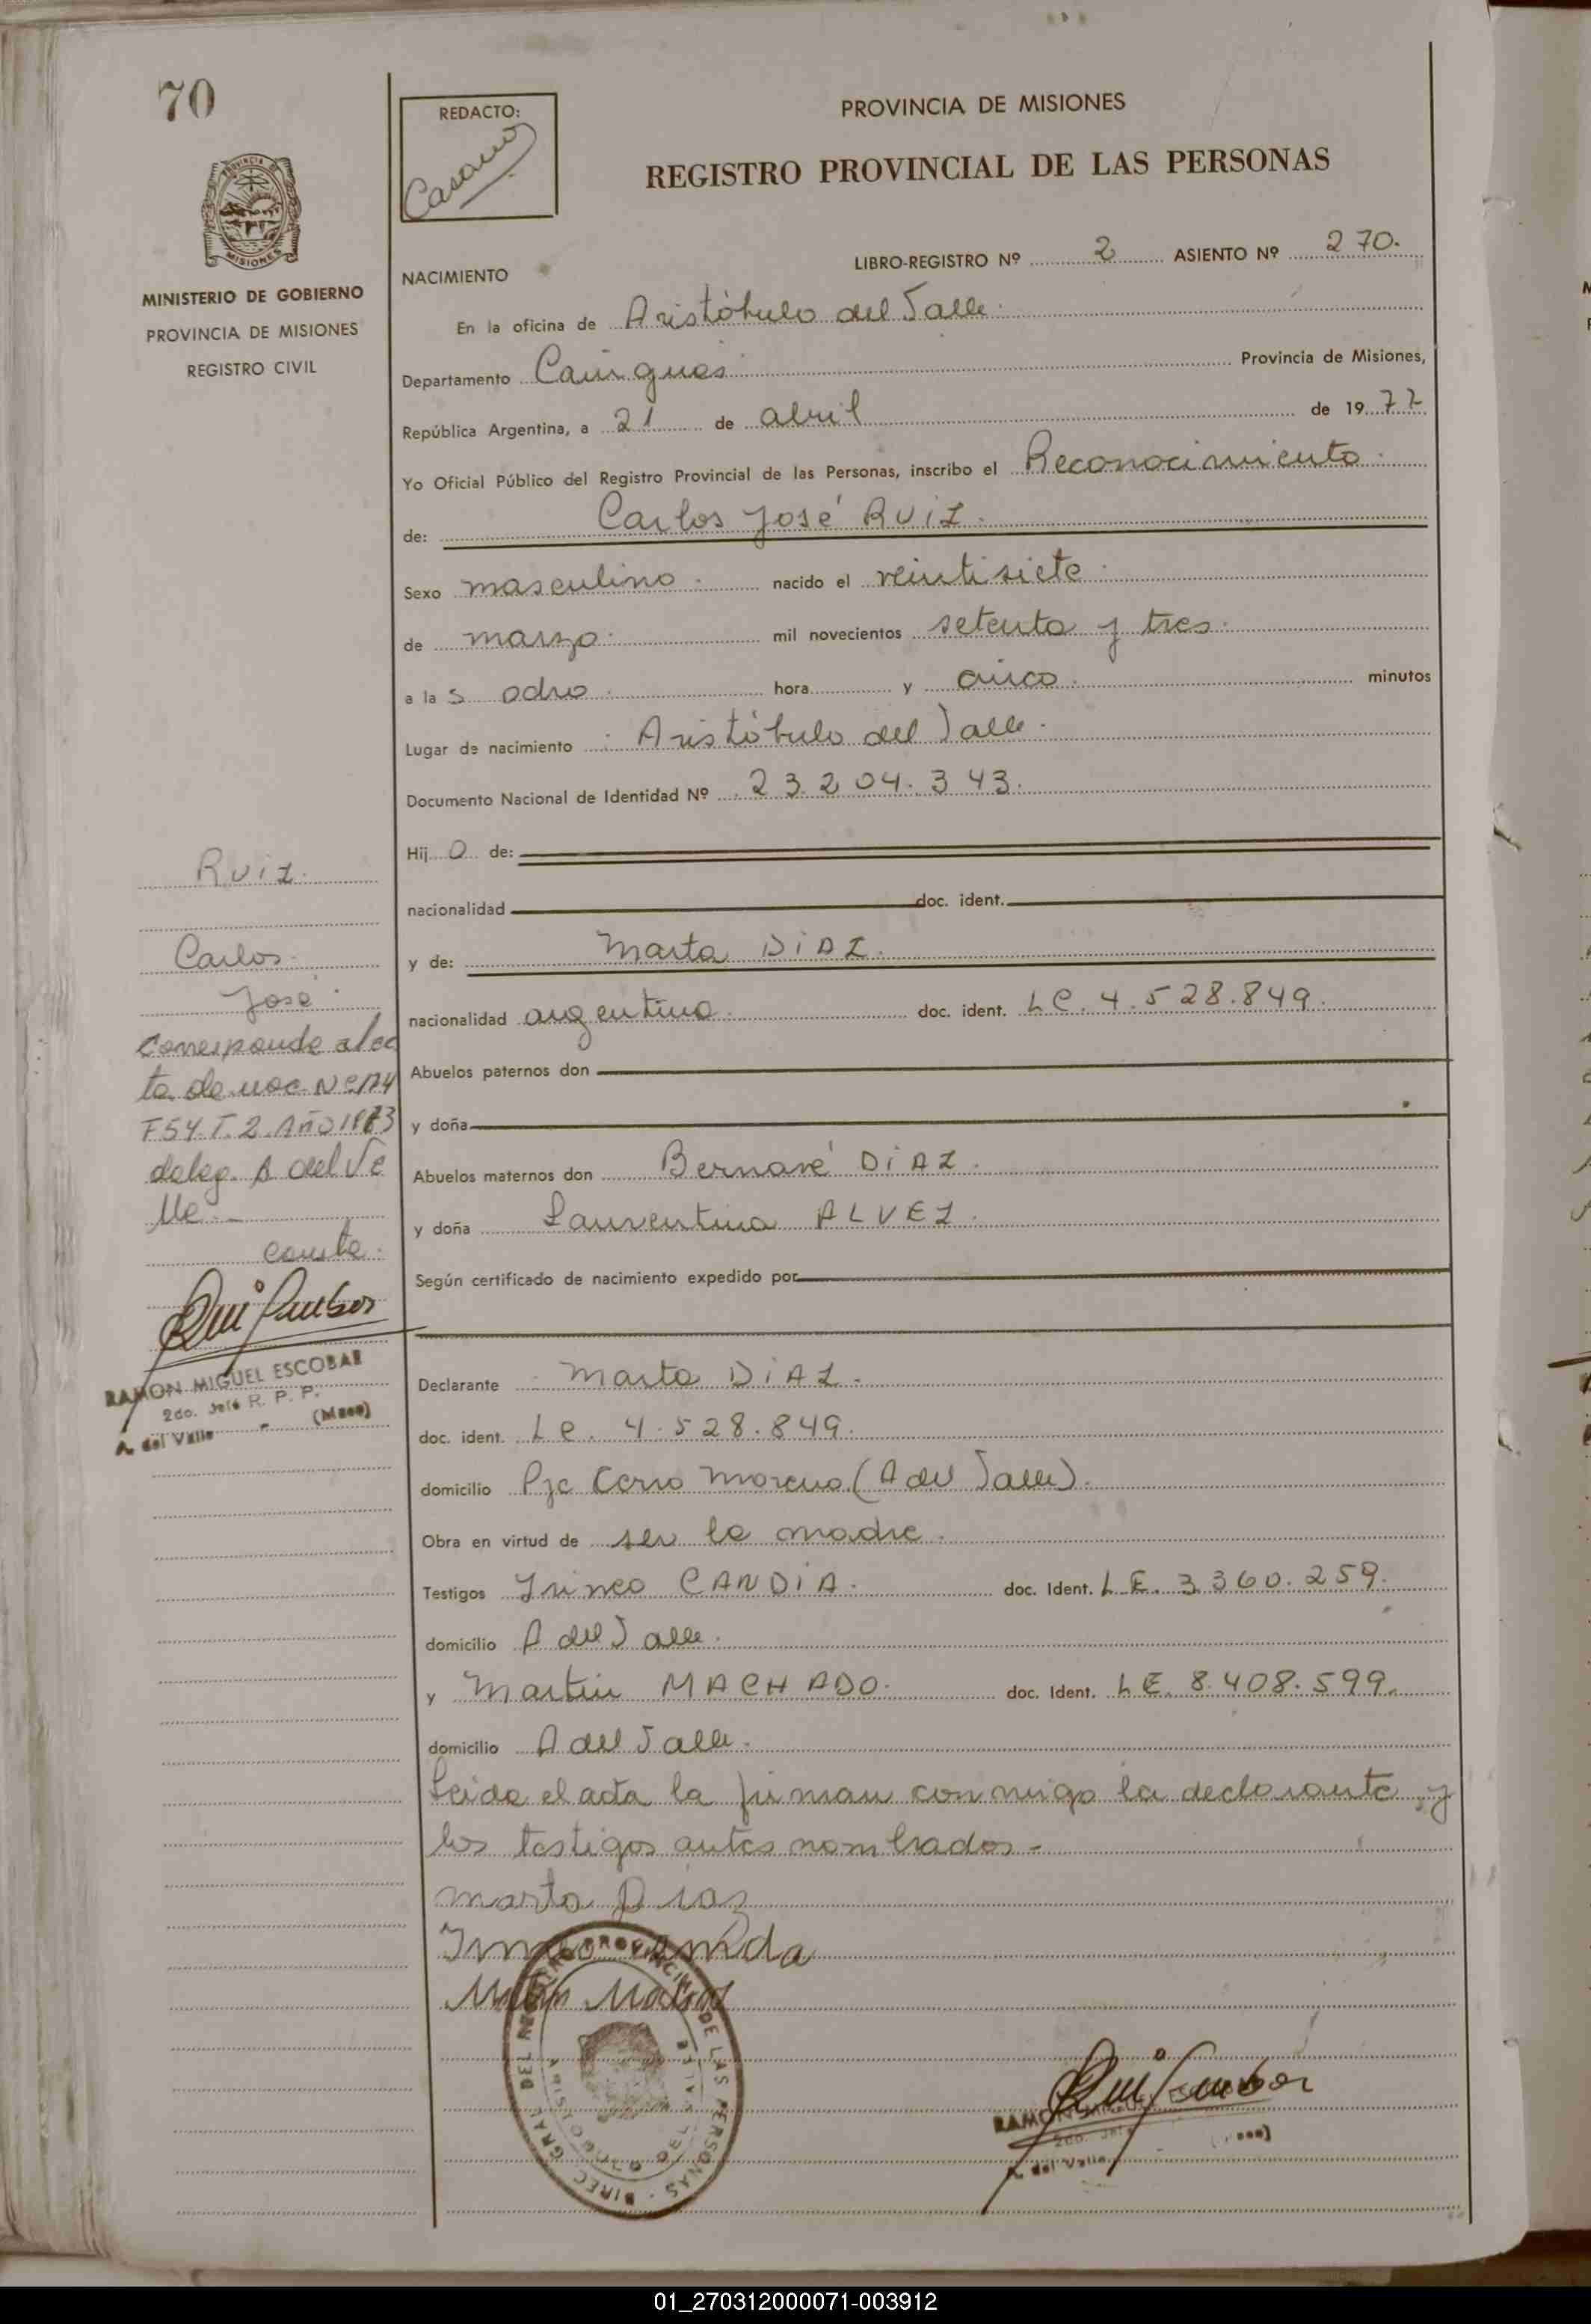 70
REDACTO:
Casano
PROVINCIA DE MISIONES
REGISTRO PROVINCIAL DE LAS PERSONAS
PROVINCIA
MISIONES
MINISTERIO DE GOBIERNO
PROVINCIA DE MISIONES
REGISTRO CIVIL
LIBRO-REGISTRO Nº 2 ASIENTO Nº 270.
NACIMIENTO
En la oficina de Aristóbulo del Valle.
Departamento Cainguas Provincia de Misiones,
República Argentina, a 21 de abril de 1977
Yo Oficial Público del Registro Provincial de las Personas, inscribo el Reconocimiento.
de: Carlos José RUIZ.
Sexo masculino. nacido el veintisiete.
de marzo. mil novecientos setenta y tres.
a las ocho. hora y cinco. minutos
Lugar de nacimiento : Aristóbulo del Valle.
Documento Nacional de Identidad Nº 23.204.343.
Hijo de:
nacionalidad doc. ident.
y de: Marta DIAZ.
nacionalidad argentina. doc. ident. LC. 4.528.849.
Abuelos paternos don
y doña
Abuelos maternos don Bernavé DIAZ.
y doña Laurentina ALVEZ.
Según certificado de nacimiento expedido por
Declarante Marta DIAZ.
doc. ident. LC. 4.528.849.
domicilio Pje Cerro Moreno (A del Valle).
Obra en virtud de ser la madre.
Testigos Irineo CANDIA. doc. Ident. LE. 3360.259.
domicilio A del Valle.
y Martin MACHADO. doc. Ident. LE. 8.408.599.
domicilio A del Valle.
Leida el acta la firman conmigo la declarante, y
los testigos antes nombrados.-
marta Diaz
RUIZ.
Carlos
José.
Corresponde al ac
ta de nac. Nº 174
F54. T. 2. Año 1973
deleg. A del Va
lle.-
conste.
RAMON MIGUEL ESCOBAR
2do. Jefe R. P. P.
A. del Valle - (Mnes)
DIREC. GRAL. DEL REGISTRO PROVINCIAL DE LAS PERSONAS
ARISTOBULO DEL VALLE
2do. Jefe
A. del Valle
01_270312000071-003912